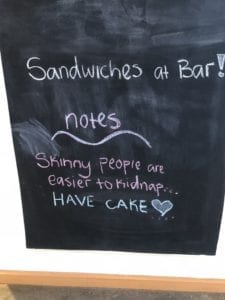 Sandwiches at Bar!
notes
Skinny people are
easier to kidnap...
HAVE CAKE ♡